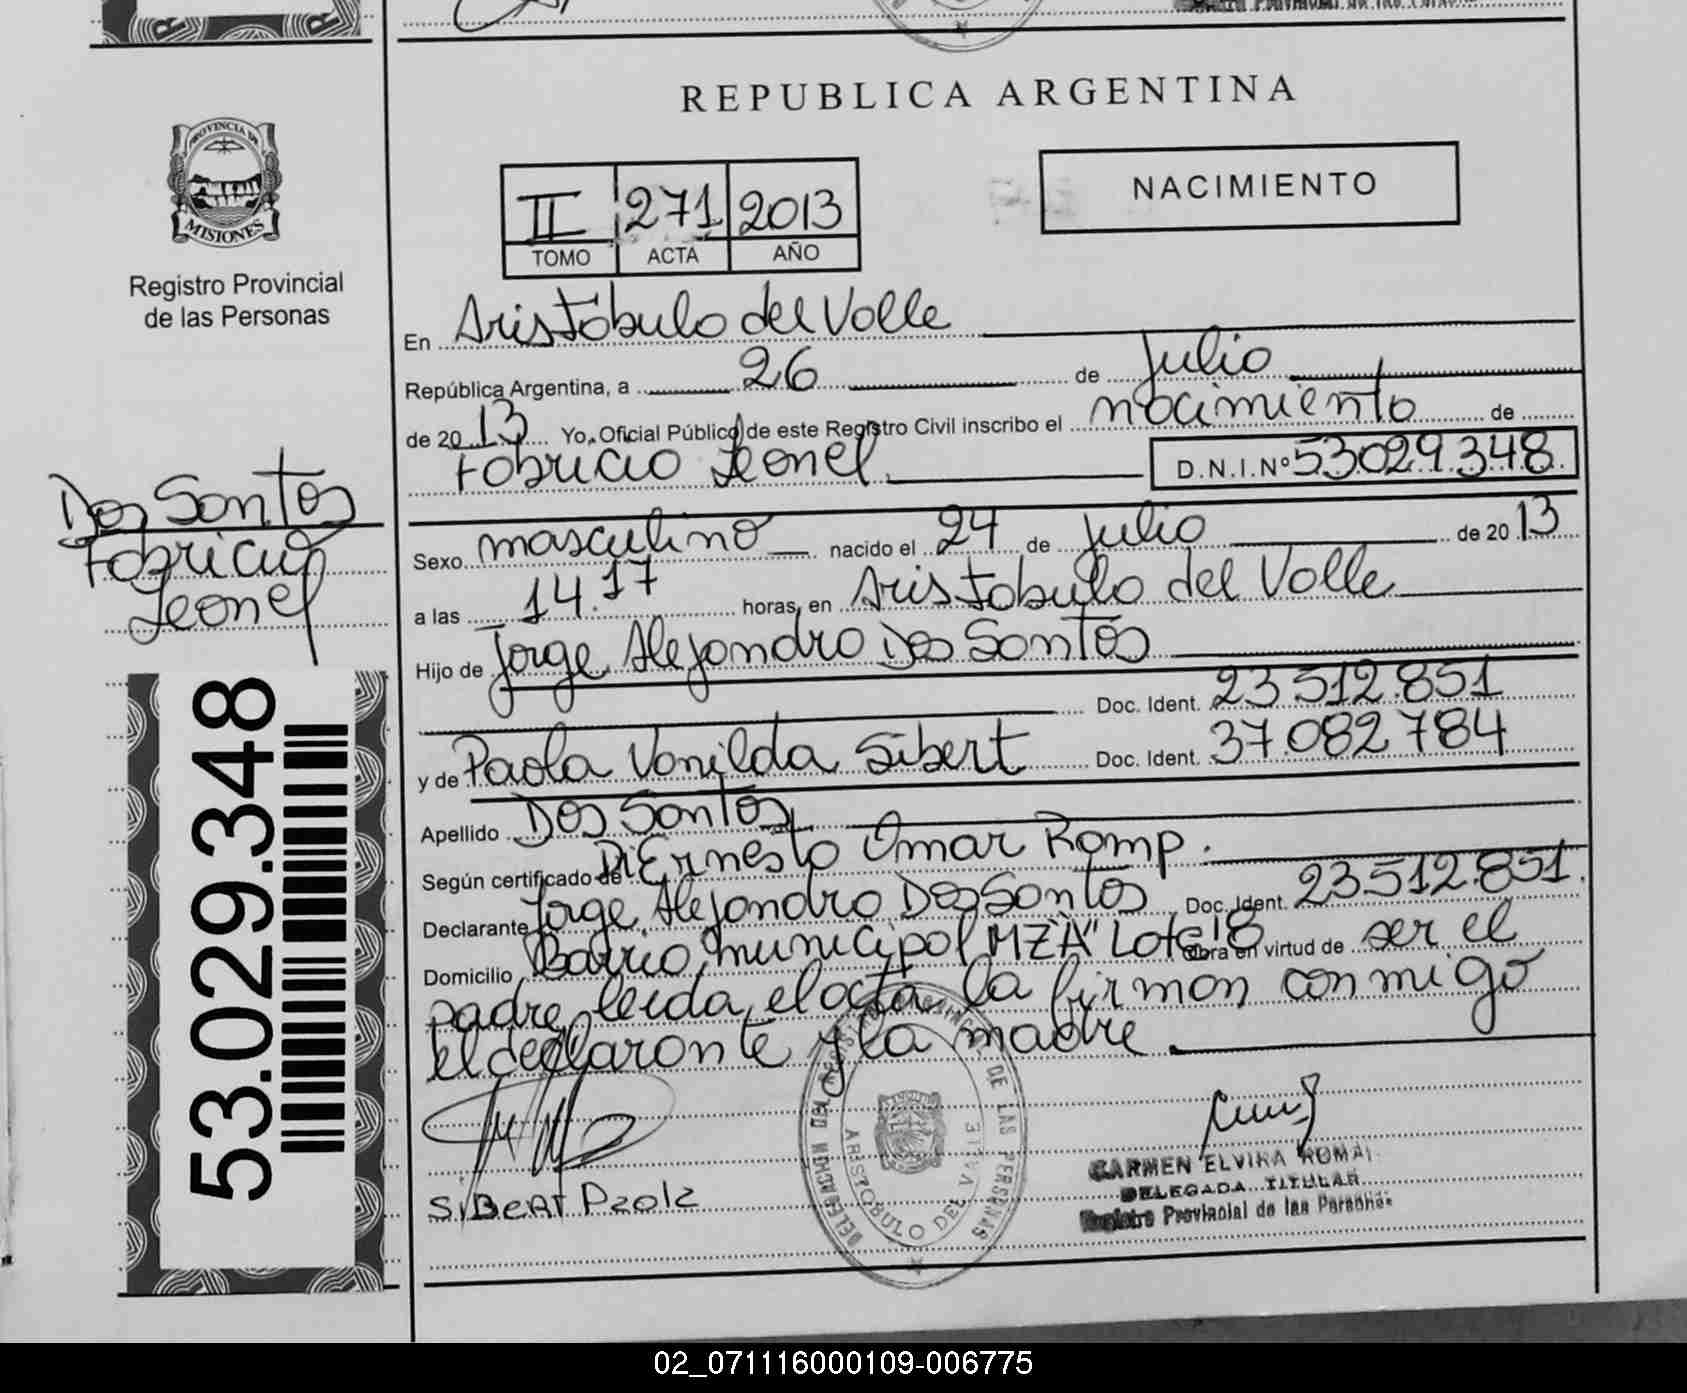 REPUBLICA ARGENTINA
PROVINCIA DE
MISIONES
Registro Provincial
de las Personas
NACIMIENTO
II 271 2013
TOMO ACTA AÑO
En Aristóbulo del Valle
República Argentina, a 26 de Julio
de 2013 Yo, Oficial Público de este Registro Civil inscribo el nacimiento de
Fabricio Leonel D.N.I.Nº 53.029.348
Dos Santos
Fabricio
Leonel
Sexo masculino nacido el 24 de Julio de 2013
a las 14.17 horas, en Aristobulo del Valle
Hijo de Jorge Alejandro Dos Santos
Doc. Ident. 23.512.851
y de Paola Vanilda Sibert Doc. Ident. 37.082.784
Apellido Dos Santos
Según certificado de Dr Ernesto Omar Romp.
Declarante Jorge Alejandro Dos Santos Doc. Ident. 23.512.851.
Domicilio Barrio municipal MZ"A" Lote 18 Obra en virtud de ser el
padre, leida el acta la firman conmigo
el declarante y la madre
53.029.348
SIBERT Paola
DELEGACION DEL REGISTRO PROVINCIAL DE LAS PERSONAS
ARISTOBULO DEL VALLE
CARMEN ELVIRA ROMAI
DELEGADA TITULAR
Registro Provincial de las Personas
02_071116000109-006775